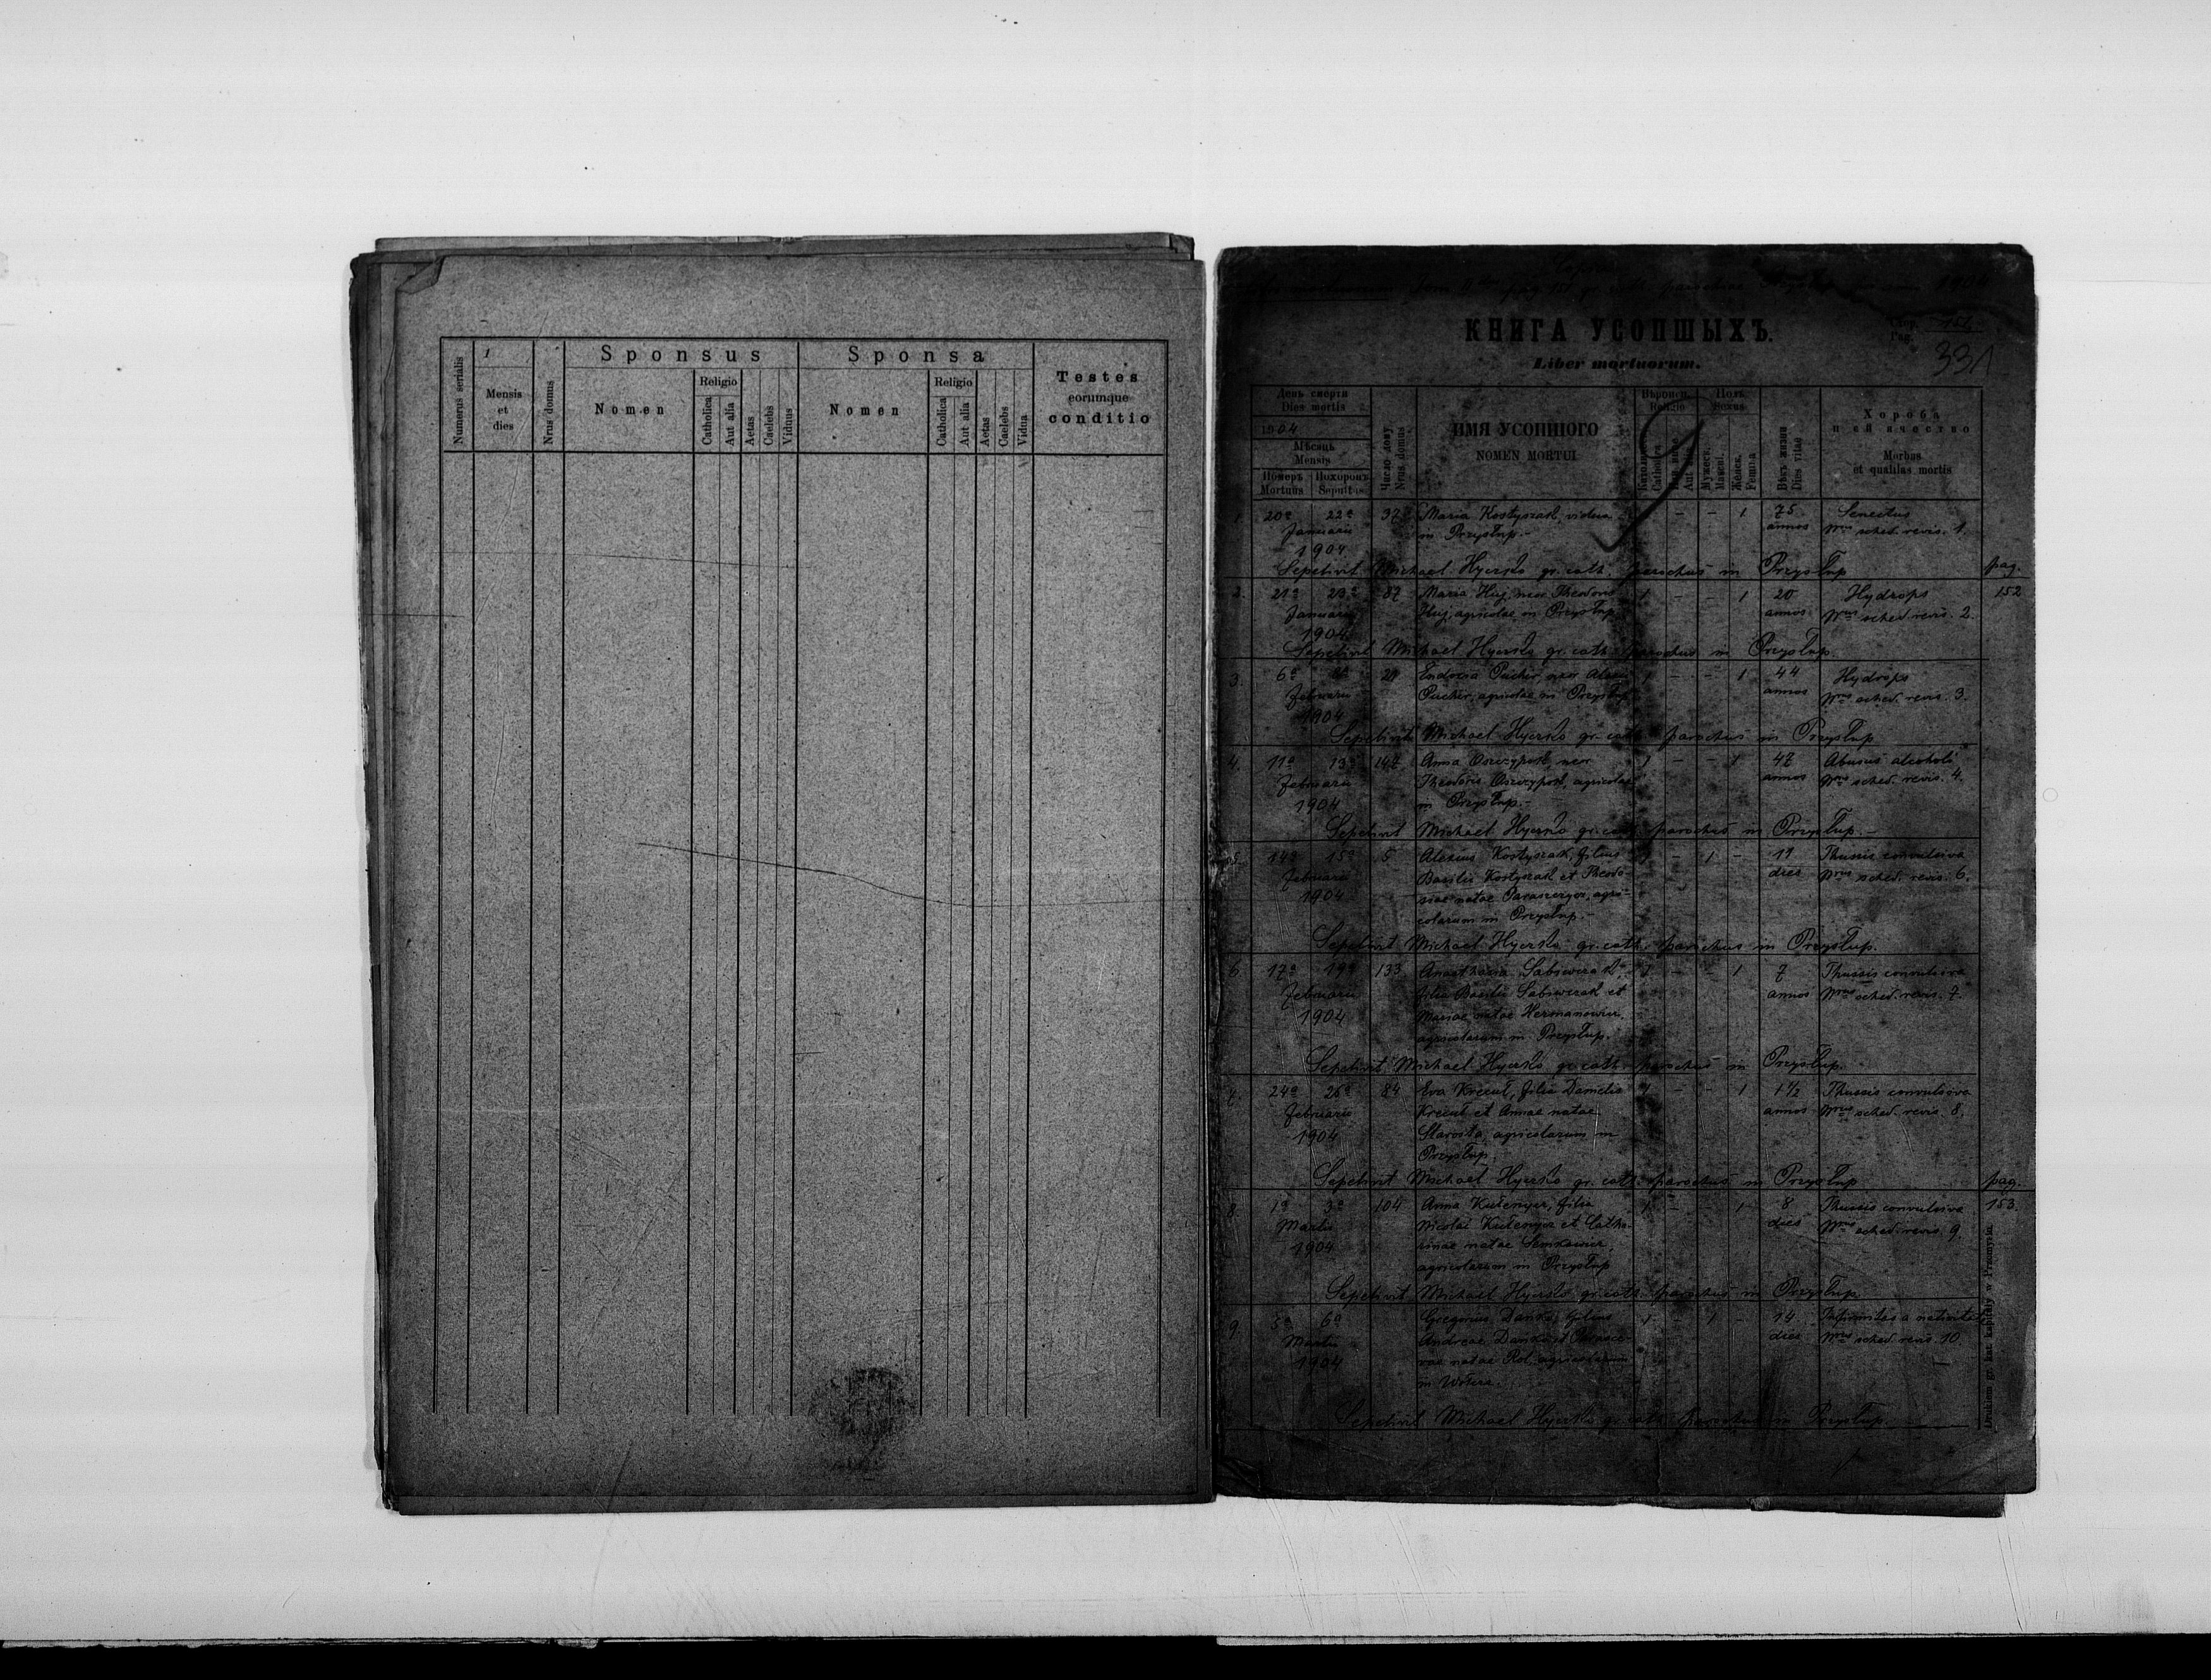 Numerus serialis
1
Mensis
et
dies
Nrus domus
Sponsus
Nomen
Religio
Catholica
Aut alia
Aetas
Caelebs
Viduus
Sponsa
Nomen
Religio
Catholica
Aut alia
Aetas
Caelebs
Vidua
Testes
eorumque
conditio
1904
КНИГА УСОПШЫХЪ.
Liber mortuorum.
Pag. 151
331
День смерти
Dies mortis
1904
Мѣсяць
Mensis
Mortuus
Sepultus
Число дому
Nrus domus
ИМЯ УСОПШОГО
NOMEN MORTUI
Religio
Catholica
Aut alia
Полъ
Sexus
Мужеск.
Mascul.
Женск.
Femina
Вѣкъ жизни
Dies vitae
Хороба
Morbus
et qualitas mortis
1. 20a 22a 37 Maria Kostyszak, vidua 1 - - 1 75 Senectus
Januarii in Przysłup.- annos Nrus sched. revis. 1.
1904
Sepelivit Michael Hyczko gr. cath. parochus in Przysłup pag.
2. 21a 23a 87 Maria Huj, uxor Theodori 1 - - 1 20 Hydrops 152
Januarii Huj, agricolae in Przysłup annos Nrus sched. revis. 2.
1904
Sepelivit Michael Hyczko gr. cath. parochus in Przysłup.
3. 6a 21 Eudocia Pucher, uxor 1 - - 1 44 Hydrops
Februarii Pucher, agricolae in Przysłup annos Nrus sched. revis. 3.
1904
Sepelivit Michael Hyczko gr. cath. parochus in Przysłup
4. 11a 13a 147 Anna uxor 1 - - 1 47 Abusus alcoholi
Februarii Theodori agricolae annos Nrus sched. revis. 4.
1904 in Przysłup.-
Sepelivit Michael Hyczko gr. cath. parochus in Przysłup.-
5. 14a 15a 5 Alexius Kostyszak, filius 1 - 1 - 19 Thussis convulsiva
Februarii Basilii Kostyszak et Theodo- dies Nrus sched. revis. 6.
1904 siae natae agri-
colarum in Przysłup.-
Sepelivit Michael Hyczko gr. cath. parochus in Przysłup.
6 17a 19a 133 Anasthasia 1 - - 1 7 Thussis convulsiva
Februarii filia Basilii et annos Nrus sched. revis. 7.
1904 Mariae natae Hermanowicz,
agricolarum in Przysłup.
Sepelivit Michael Hyczko gr. cath. parochus in Przysłup.
7. 24a 26a 84 Eva Krecul, filia Danielis 1 - - 1 1 1/2 Thussis convulsiva
Februarii Krecul et Annae natae annos Nrus sched. revis. 8.
1904 Starosta, agricolarum in
Przysłup.
Sepelivit Michael Hyczko gr. cath. parochus in Przysłup pag.
8 1a 3a 104 Anna Kułenycz, filia 1 - - 1 8 Thussis convulsiva 153.
Martii Nicolai Kułenycz et Catha- dies Nrus sched. revis. 9.
1904 rinae natae
agricolarum in Przysłup
Sepelivit Michael Hyczko gr. cath. parochus in Przysłup
9. 5a 6a Gregorius Danko, filius 1 - 1 - 14 Infirmitas a nativitate
Martii Andreae Danko et dies Nrus sched. revis. 10.
1904 natae agricolarum
in
Sepelivit Michael Hyczko gr. cath. parochus in Przysłup.
Drukiem gr. kat. kapituły w Przemyślu.